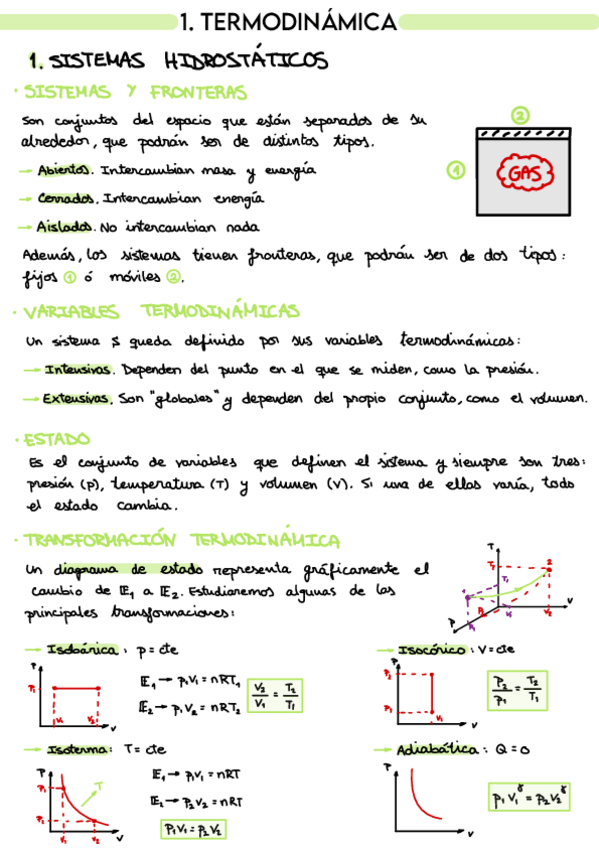 1. TERMODINÁMICA
1. SISTEMAS HIDROSTÁTICOS
· SISTEMAS Y FRONTERAS
Son conjuntos del espacio que están separados de su
alrededor, que podrán ser de distintos tipos.
→ Abiertos. Intercambian masa y energía
→ Cerrados. Intercambian energía
→ Aislados. No intercambian nada
Además, los sistemas tienen fronteras, que podrán ser de dos tipos:
fijos ① ó móviles ②.
②
①
GAS
· VARIABLES TERMODINÁMICAS
Un sistema S queda definido por sus variables termodinámicas:
→ Intensivas. Dependen del punto en el que se miden, como la presión.
→ Extensivas. Son "globales" y dependen del propio conjunto, como el volumen.
· ESTADO
Es el conjunto de variables que definen el sistema y siempre son tres:
presión (p), temperatura (T) y volumen (V). Si una de ellas varía, todo
el estado cambia.
· TRANSFORMACIÓN TERMODINÁMICA
Un diagrama de estado representa gráficamente el
cambio de E₁ a E₂. Estudiaremos algunas de las
principales transformaciones:
T
T₂
2
T₁
1
V
P
P₁
V₁
V₂
→ Isobárica: p = cte
P
P₁
V₁
V₂
V
E₁ → p₁V₁ = nRT₁
E₂ → p₁V₂ = nRT₂
V₂/V₁ = T₂/T₁
→ Isocórico: V = cte
P
P₂
P₁
V₁
V
P₂/P₁ = T₂/T₁
→ Isoterma: T = cte
P
P₁
T
V₁
V₂
V
E₁ → p₁V₁ = nRT
E₂ → p₂V₂ = nRT
p₁V₁ = p₂V₂
→ Adiabática: Q = 0
P
V
p₁V₁^γ = p₂V₂^γ